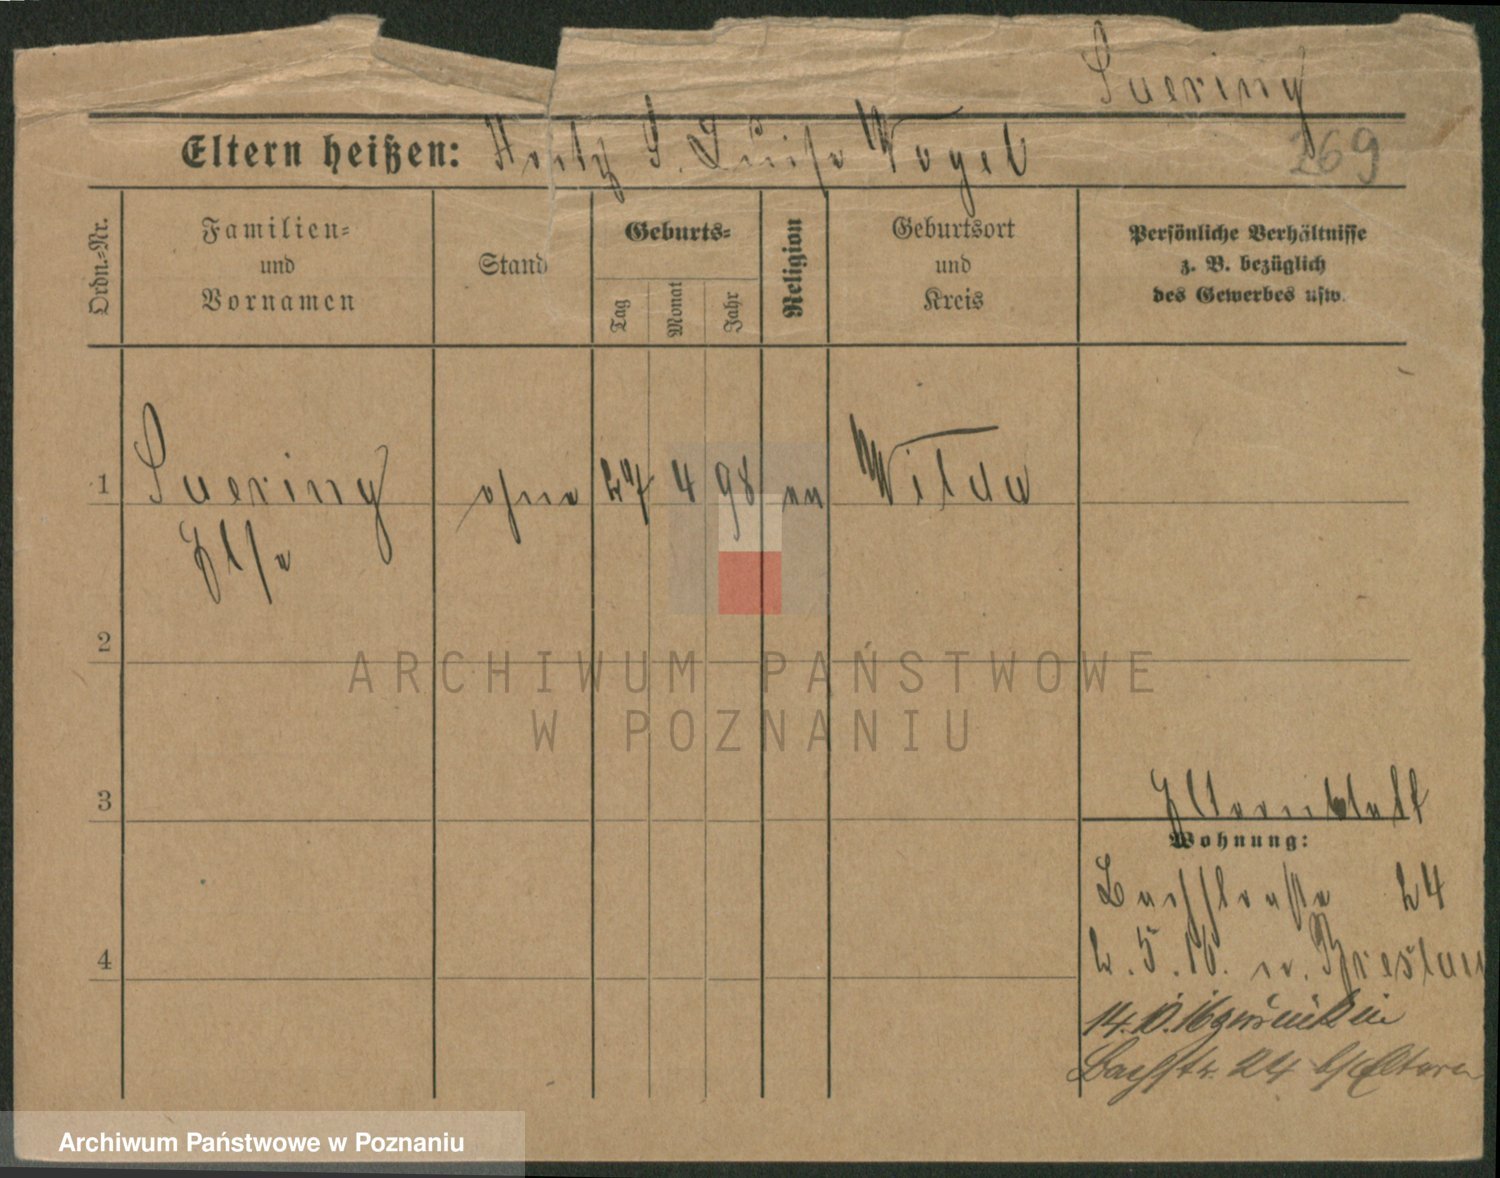 Suering
Eltern heißen: S. Luise Vogel
269
Ordn.-Nr.
Familien-
und
Vornamen
Stand
Geburts-
Tag
Monat
Jahr
Religion
Geburtsort
und
Kreis
Persönliche Verhältnisse
z. B. bezüglich
des Gewerbes usw.
1 Suering ohne 27 4 98 ev Wilda
Else
2
ARCHIWUM PAŃSTWOWE
W POZNANIU
3
Elternblatt
Wohnung:
Bachstraße 24
4
2.5.16. n. Breslau
14.10.16 zurück in
Bachstr. 24 b/Eltern
Archiwum Państwowe w Poznaniu